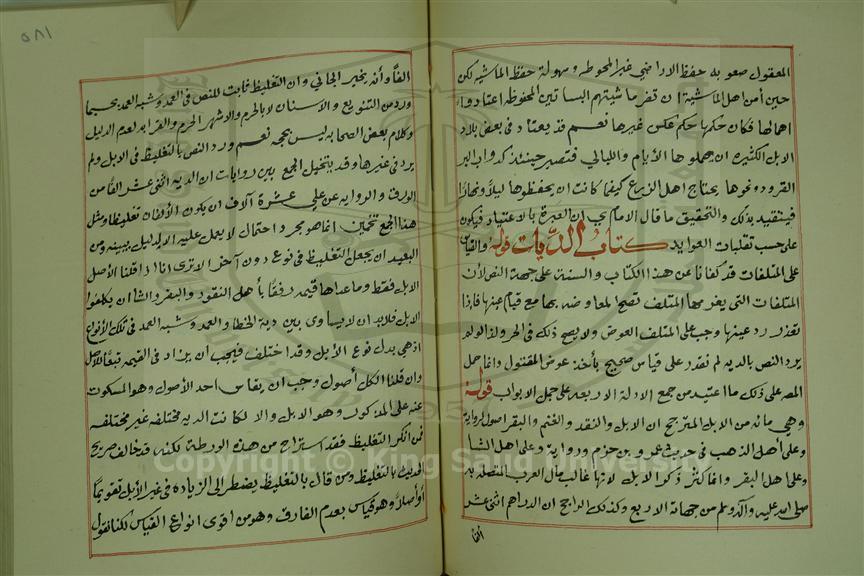 المعقول صعوبة حفظ الاراضي غير المحوطه وسهولة حفظ الماشيه لكن
حين أمن اهل الماشية ان تفر ماشيتهم البساتين المحفوظه اعتادوا
اهمالها فكان حكمها حكم عكس غيرها نعم قد يعتاد في بعض بلاد
الابل الكثيره ان يهملوها الأيام والليالي فتصير حينئذ كدواب البر
القرود ونحوها يحتاج اهل الزرع كيفما كانت ان يحفظوها ليلاً ونهاراً
فينتقيد بذلك والتحقيق ما قال الامام يحيى ان العبرة بالاعتياد فيكون
على حسب تقلبات العوايد كتاب الديات قوله والقياس
على المتلفات قد كفانا عن هذا الكتاب والسنة على جهة النص لأن
المتلفات التي يغرمها المتلف تصح المعاوضه بها مع قيام عينها فاذا
تعذر رد عينها وجب على المتلف العوض ولا يصح ذلك في الحر ولذا لو لم
يرد النص بالديه لم نقدر على قياس صحيح يأخذ عوض المقتول وانما حمل
المص على ذلك ما اعتيد من جمع الادلة الاربعه على جمل الابواب قوله
وهي مائة من الابل المترجح ان الابل والنقد والغنم والبقر اصول لرواية
وعلى أهل الذهب في حديث عمرو بن حزم ورواية وعلى اهل الشا
وعلى اهل البقر وانما كثر ذكر الابل لانها غالب مال العرب المتصله به
صلى الله عليه وآله وسلم من جهاته الاربع وكذلك الراجح ان الدراهم اثنى عشر
الفا
٥٨١
الفاً وأنه يخير الجاني وان التغليظ ثابت للنص في العمد وشبه العمد بحسبما
ورد من التنويع والأسنان لا بالحرم والاشهر الحرم والقرابه لعدم الدليل
وكلام بعض الصحابه ليس بحجه نعم ورد النص بالتغليظ في الابل ولم
يرد في غيرها وقد يتخيل الجمع بين روايات ان الديه اثنى عشر الفا من
الورق والروايه عن علي عشرة آلاف ان يكون الألفان تغليظا ومثل
هذا الجمع تخمين انما هو مجرد احتمال لا يعمل عليه الا لدليل يبينه ومن
البعيد ان يجعل التغليظ في نوع دون آخر الا ترى انا اذا قلنا الأصل
الابل فقط وما عداها قيمه رفقا بأهل النقود والبقر والشا ان يكلفوا
الابل فلابد ان لا يساوى بين دية الخطا والعمد وشبه العمد في تلك الأنواع
اذ هي بدل نوع الأبل وقد اختلف فيجب ان يزاد في القيمه تبعاً للأصل
وان قلنا الكل أصول وجب ان يقاس احد الأصول وهو المسكوت
عنه على المذكور وهو الابل والا لكانت الديه مختلفه غير مختلفه
فمن انكر التغليظ فقد استراح من هذه الورطة لكنه قد خالف صريح
الحديث بالتغليظ ومن قال بالتغليظ يضطر الى الزياده في غير الأبل تقويماً
أو أصلاً وهو قياس بعدم الفارق وهو من اقوى انواع القياس لكنا نقول